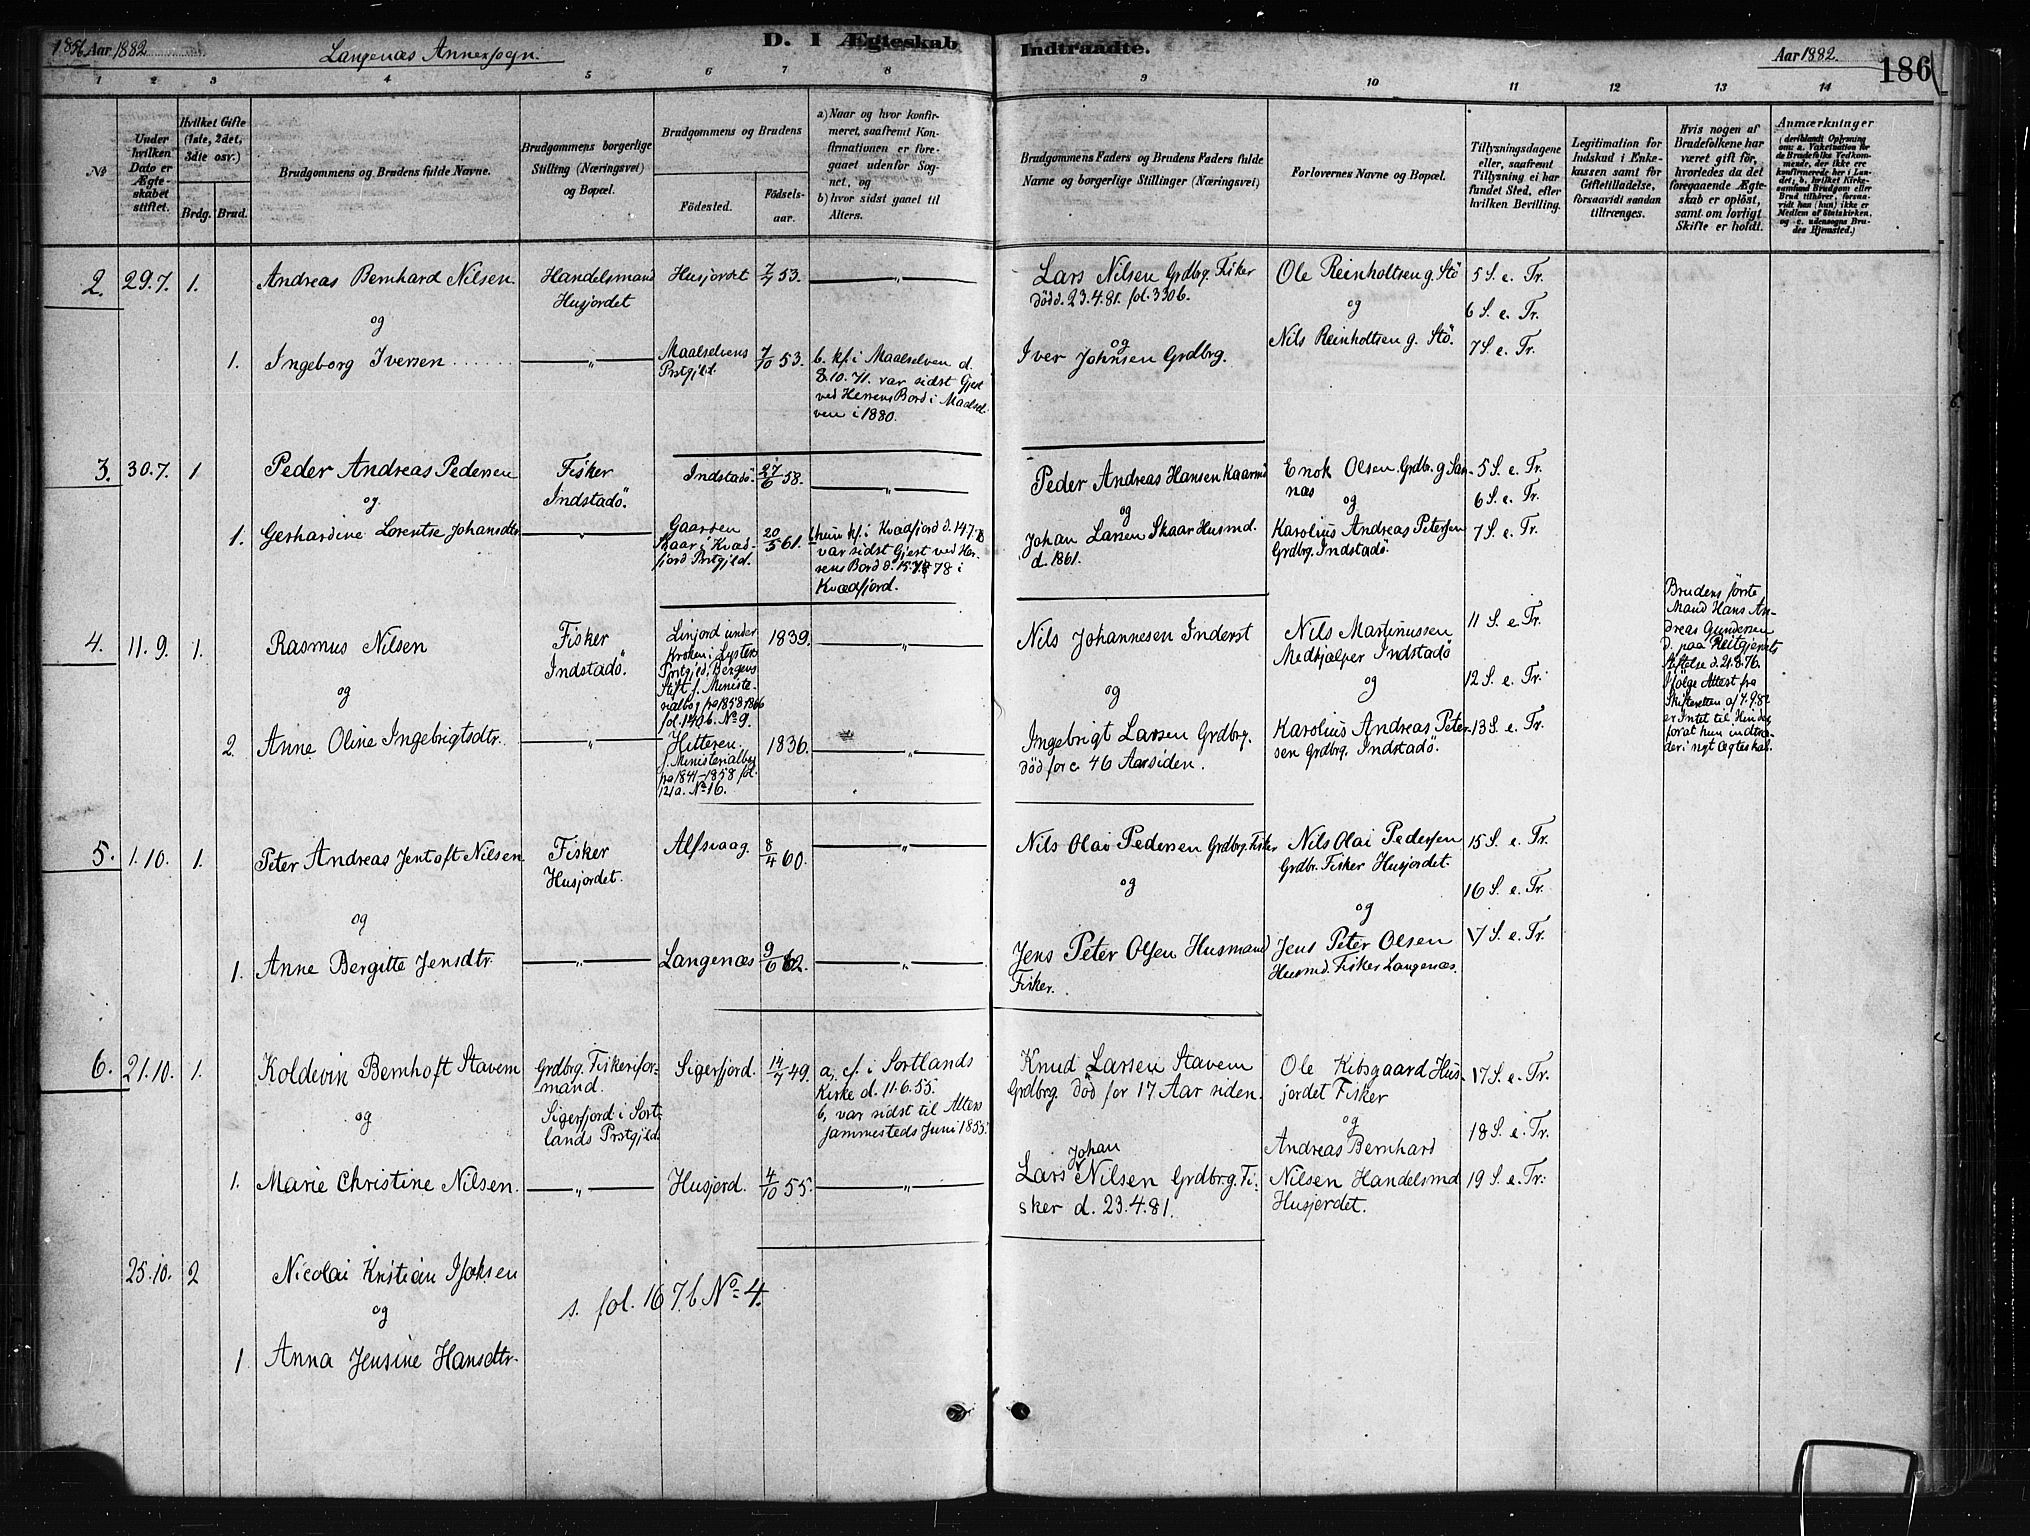 1856 Aar 1882
Langenæs Annexsogn.
D. I Ægteskab Indtraadte.
Aar 1882.
186
1 2 3 4 5 6 7 8 9 10 11 12 13 14
№
Under hvilken Dato er Ægteskabet stiftet.
Hvilket Gifte (1ste, 2det, 3die osv.)
Brdg. Brud.
Brudgommens og Brudens fulde Navne.
Brudgommens borgerlige Stilling (Næringsvei) og Bopæl.
Brudgommens og Brudens
Födested.
Födsels-aar.
a) Naar og hvor konfirmeret, saafremt Konfirmationen er foregaaet udenfor Sognet, og
b) hvor sidst gaaet til Alters.
Brudgommens Faders og Brudens Faders fulde Navne og borgerlige Stillinger (Næringsvei)
Forlovernes Navne og Bopæl.
Tillysningsdagene eller, saafremt Tillysning ei har fundet Sted, efter hvilken Bevilling.
Legitimation for Indskud i Enkekassen samt for Giftetilladelse, forsaavidt saadan tiltrænges.
Hvis nogen af Brudefolkene har været gift för, hvorledes da det foregaaende Ægteskab er oplöst, samt om lovligt Skifte er holdt.
Anmærkninger (deriblandt Oplysning om: a. Vakcination for de Brudefolks Vedkommende, der ikke ere konfirmerede her i Landet; b. hvilket Kirkesamfund Brudgom eller Brud tilhörer, forsaavidt han (hun) ikke er Medlem af Statskirken, og c. udensogns Brudes Hjemsted.)
2. 29.7. 1. Andreas Bernhard Nilsen. Handelsmand Husjordet 7/7 53. — „ —
Husjordet
Lars Nilsen Grdbrg. Fisker
död d. 23.4.81. fol. 330b.
Ole Reinholtsen g. Stö
og
Nils Reinholtsen g. Stö.
5 S. e. Tr.
6 S. e. Tr.
7 S. e. Tr.
og
1. Ingeborg Iversen — „ — Maalselvens Prstgjld. 7/10 53.
b. kf. i Maalselven d.
8.10.71. var sidst Gjest
ved Herrens Bord i Maalsel-
ven i 1880.
og
Iver Johnsen Grdbrg.
3. 30.7. 1 Peder Andreas Pedersen Fisker Indstadö. 27/6 58. — „ —
Indstadö.
Peder Andreas Hansen Kaarmd
Enok Olsen Grdbr. g. San-
næs
og
5 S. e. Tr.
6 S. e. Tr.
7 S. e. Tr.
og
1. Gerhardine Lorentse Johansdtr — „ —
Gaarden
Skaar i Kvæd-
fjord Prstgjld.
20/5 61.
hun kf. i Kvædfjord d. 14.7.78
var sidst Gjest ved Her-
rens Bord d. 15.7.78 i
Kvædfjord.
og
Johan Larsen Skaar Husmd.
d. 1861.
Karolius Andreas Petersen
Grdbrg. Indstadö.
4. 11.9. 1. Rasmus Nilsen Fisker
Indstadö.
Linjord under
Kroken i Lysters
Prstgjld, Bergens
Stift f. Ministe-
rialbog fra 1858-1866
fol. 140b. No 9.
1839. — „ —
Nils Johannesen Inderst
Nils Martinussen
Medhjælper Indstadö
og
11 S. e. Tr.
12 S. e. Tr.
13 S. e. Tr.
Brudens förste
Mand Hans An-
dreas Gundersen
d. paa
d. 21.8.76.
Ifölge Attest fra
Skifteretten af 7.9.82
er Intet til Hinder
forat hun indtræ-
der i nyt Ægteskab.
og
2. Anne Oline Ingebrigtsdtr. — „ —
Hitteren.
f. Ministerialbog
fra 1841-1858 fol.
121a. No 16.
1836. — „ —
og
Ingebrigt Larsen Grdbrg.
död for c 46 Aar siden.
Karolius Andreas Peter-
sen Grdbrg. Indstadö.
5. 1.10. 1. Peter Andreas Jentoft Nilsen Fisker Alfsvaag 8/4 60. — „ —
Husjordet.
Nils Olai Pedersen Grdbrg. Fisker
Nils Olai Pedersen
Grdbr. Fisker Husjordet.
15 S. e. Tr.
16 S. e. Tr.
17 S. e. Tr.
og
1. Anne Bergitte Jensdtr. — „ — Langenæs 9/6 62. — „ —
og
Jens Peter Olsen Husmand
Fisker.
og
Jens Peter Olsen
Husmd. Fisker Langenæs.
6. 21.10. 1. Koldevin Bernhoft Stavem
Grdbrg. Fiskerifor-
mand.
Sigerfjord i Sort-
lands Prstgjld.
Sigerfjord. 14/7 49.
a, cf. i Sortlands
Kirke d. 11.6.55.
b, var sidst til Alters
sammesteds Juni 1855.
Knud Larsen Stavem
Grdbrg. död for 17 Aar siden.
Ole Kibsgaard Hus-
jordet Fisker
og
17 S. e. Tr.
18 S. e. Tr.
19 S. e. Tr.
og
1. Marie Christine Nilsen. — „ — Husjord. 4/10 55. — „ —
Johan
Lars Nilsen Grdbrg. Fi-
sker d. 23.4.81.
Andreas Bernhard
Nilsen Handelsmd
Husjordet.
25.10. 2 Nicolai Kristian Isaksen
og
s. fol. 167b No 4.
1 Anna Jensine Hansdtr.